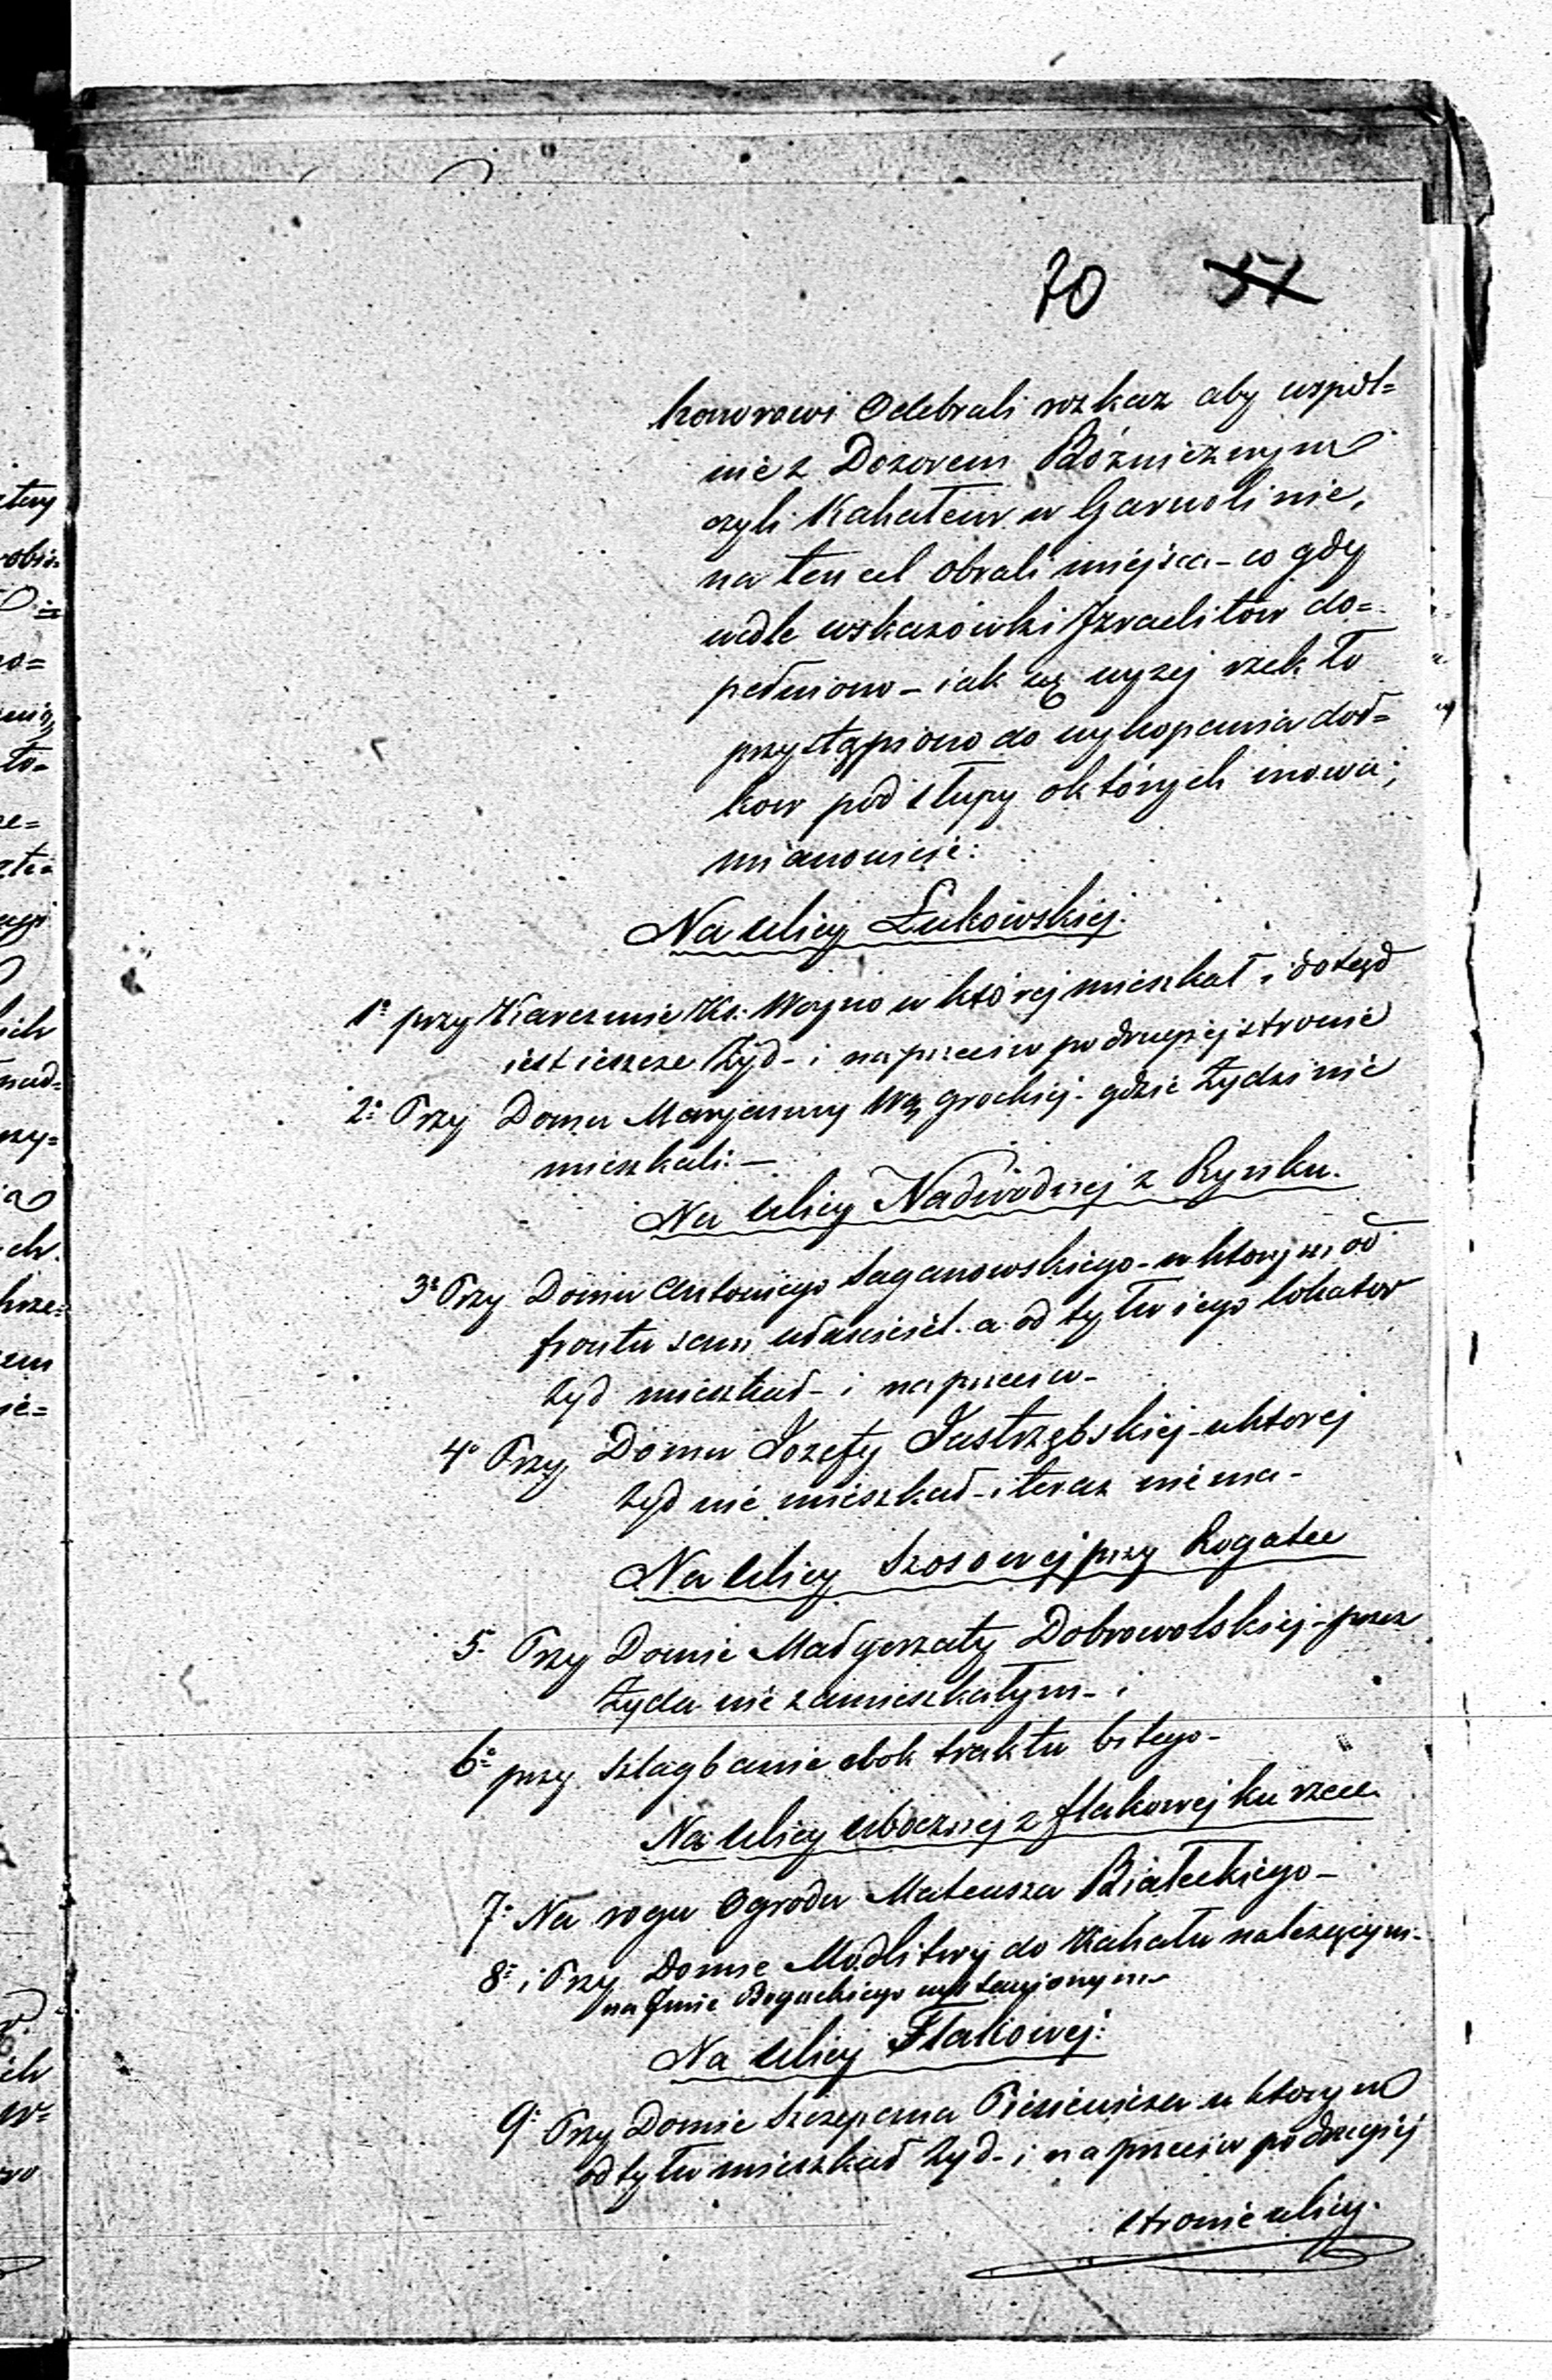 70 51
honorowi Odebrali rozkaz aby wspól=
nie z Dozorem Bóźnicznym
czyli Kahałem w Garwolinie,
na ten cel obrali miejsca – co gdy
wedle wskazówki Izraelitów do=
pełniono – iak się wyżej rzekło
przystąpiono do wykopania doł=
kow pod słupy o których mowa;
mianowicie:
Na ulicy Łukowskiej.
1º przy Karczmie Ks: Woyno w której mieszkał i dotąd
iest ieszcze Żyd – i naprzeciw po drugiej stronie
2º Przy Domu Maryanny Wągrockiej – gdzie Żydzi nie
mieszkali. –
Na ulicy Nadwodnej z Rynku.
3º Przy Domu Antoniego Saganowskiego – w ktorym od
frontu sam właściciel a od tyłu iego lokator
żyd mieszkał – i naprzeciw –
4º Przy Domu Jozefy Jastrzębskiej – u ktorej
żyd nie mieszkał – i teraz niema –
Na Ulicy Szosowej przy Rogatce
5. Przy Domie Małgorzaty Dobrowolskiej – przez
Żyda nie zamieszkałym – i
6º przy szlagbanie obok traktu bitego –
Na Ulicy ubocznej z flakowej ku rzece.
7º Na rogu Ogrodu Mateusza Białeckiego –
8º i Przy Domie Modlitwy do Kahału należącym –
na Imie Bogackiego wystawionym
Na Ulicy Flakowej:
9º Przy Domie Szczepana w ktorym
od tyłu mieszkał żyd – i naprzeciw po drugiej
stronie ulicy.